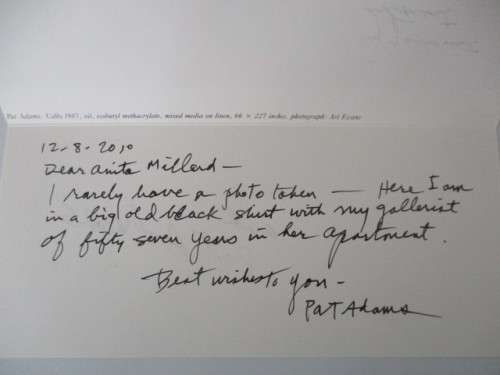 Pat Adams, Valls 1987, oil, isobutyl methacrylate, mixed media on linen, 66 × 227 inches, photograph: Art Evans
12-8-2010
Dear Anita Millard —
I rarely have a photo taken — Here I am
in a big old black shirt with my gallerist
of fifty seven years in her apartment.
Best wishes to you -
Pat Adams